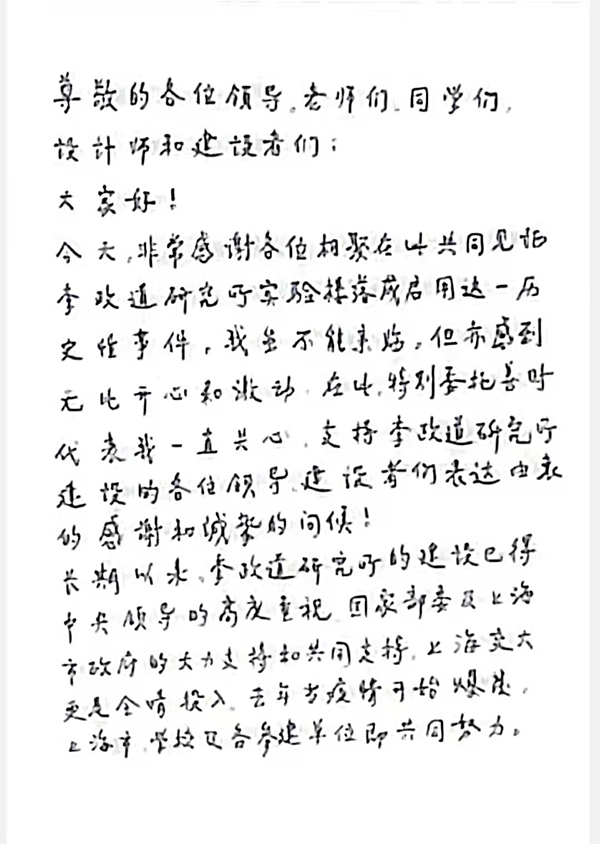 尊敬的各位领导、老师们、同学们,
设计师和建设者们:
大家好!
今天,非常感谢各位相聚在此共同见证
李政道研究所实验楼落成启用这一历
史性事件,我虽不能来临,但亦感到
无比开心和激动。在此,特别委托善时
代表我一直关心、支持李政道研究所
建设的各位领导、建设者们表达由衷
的感谢和诚挚的问候!
长期以来,李政道研究所的建设已得
中央领导的高度重视、国家部委及上海
市政府的大力支持和共同支持,上海交大
更是全情投入。去年当疫情开始爆发,
上海市、学校及各参建单位即共同努力。